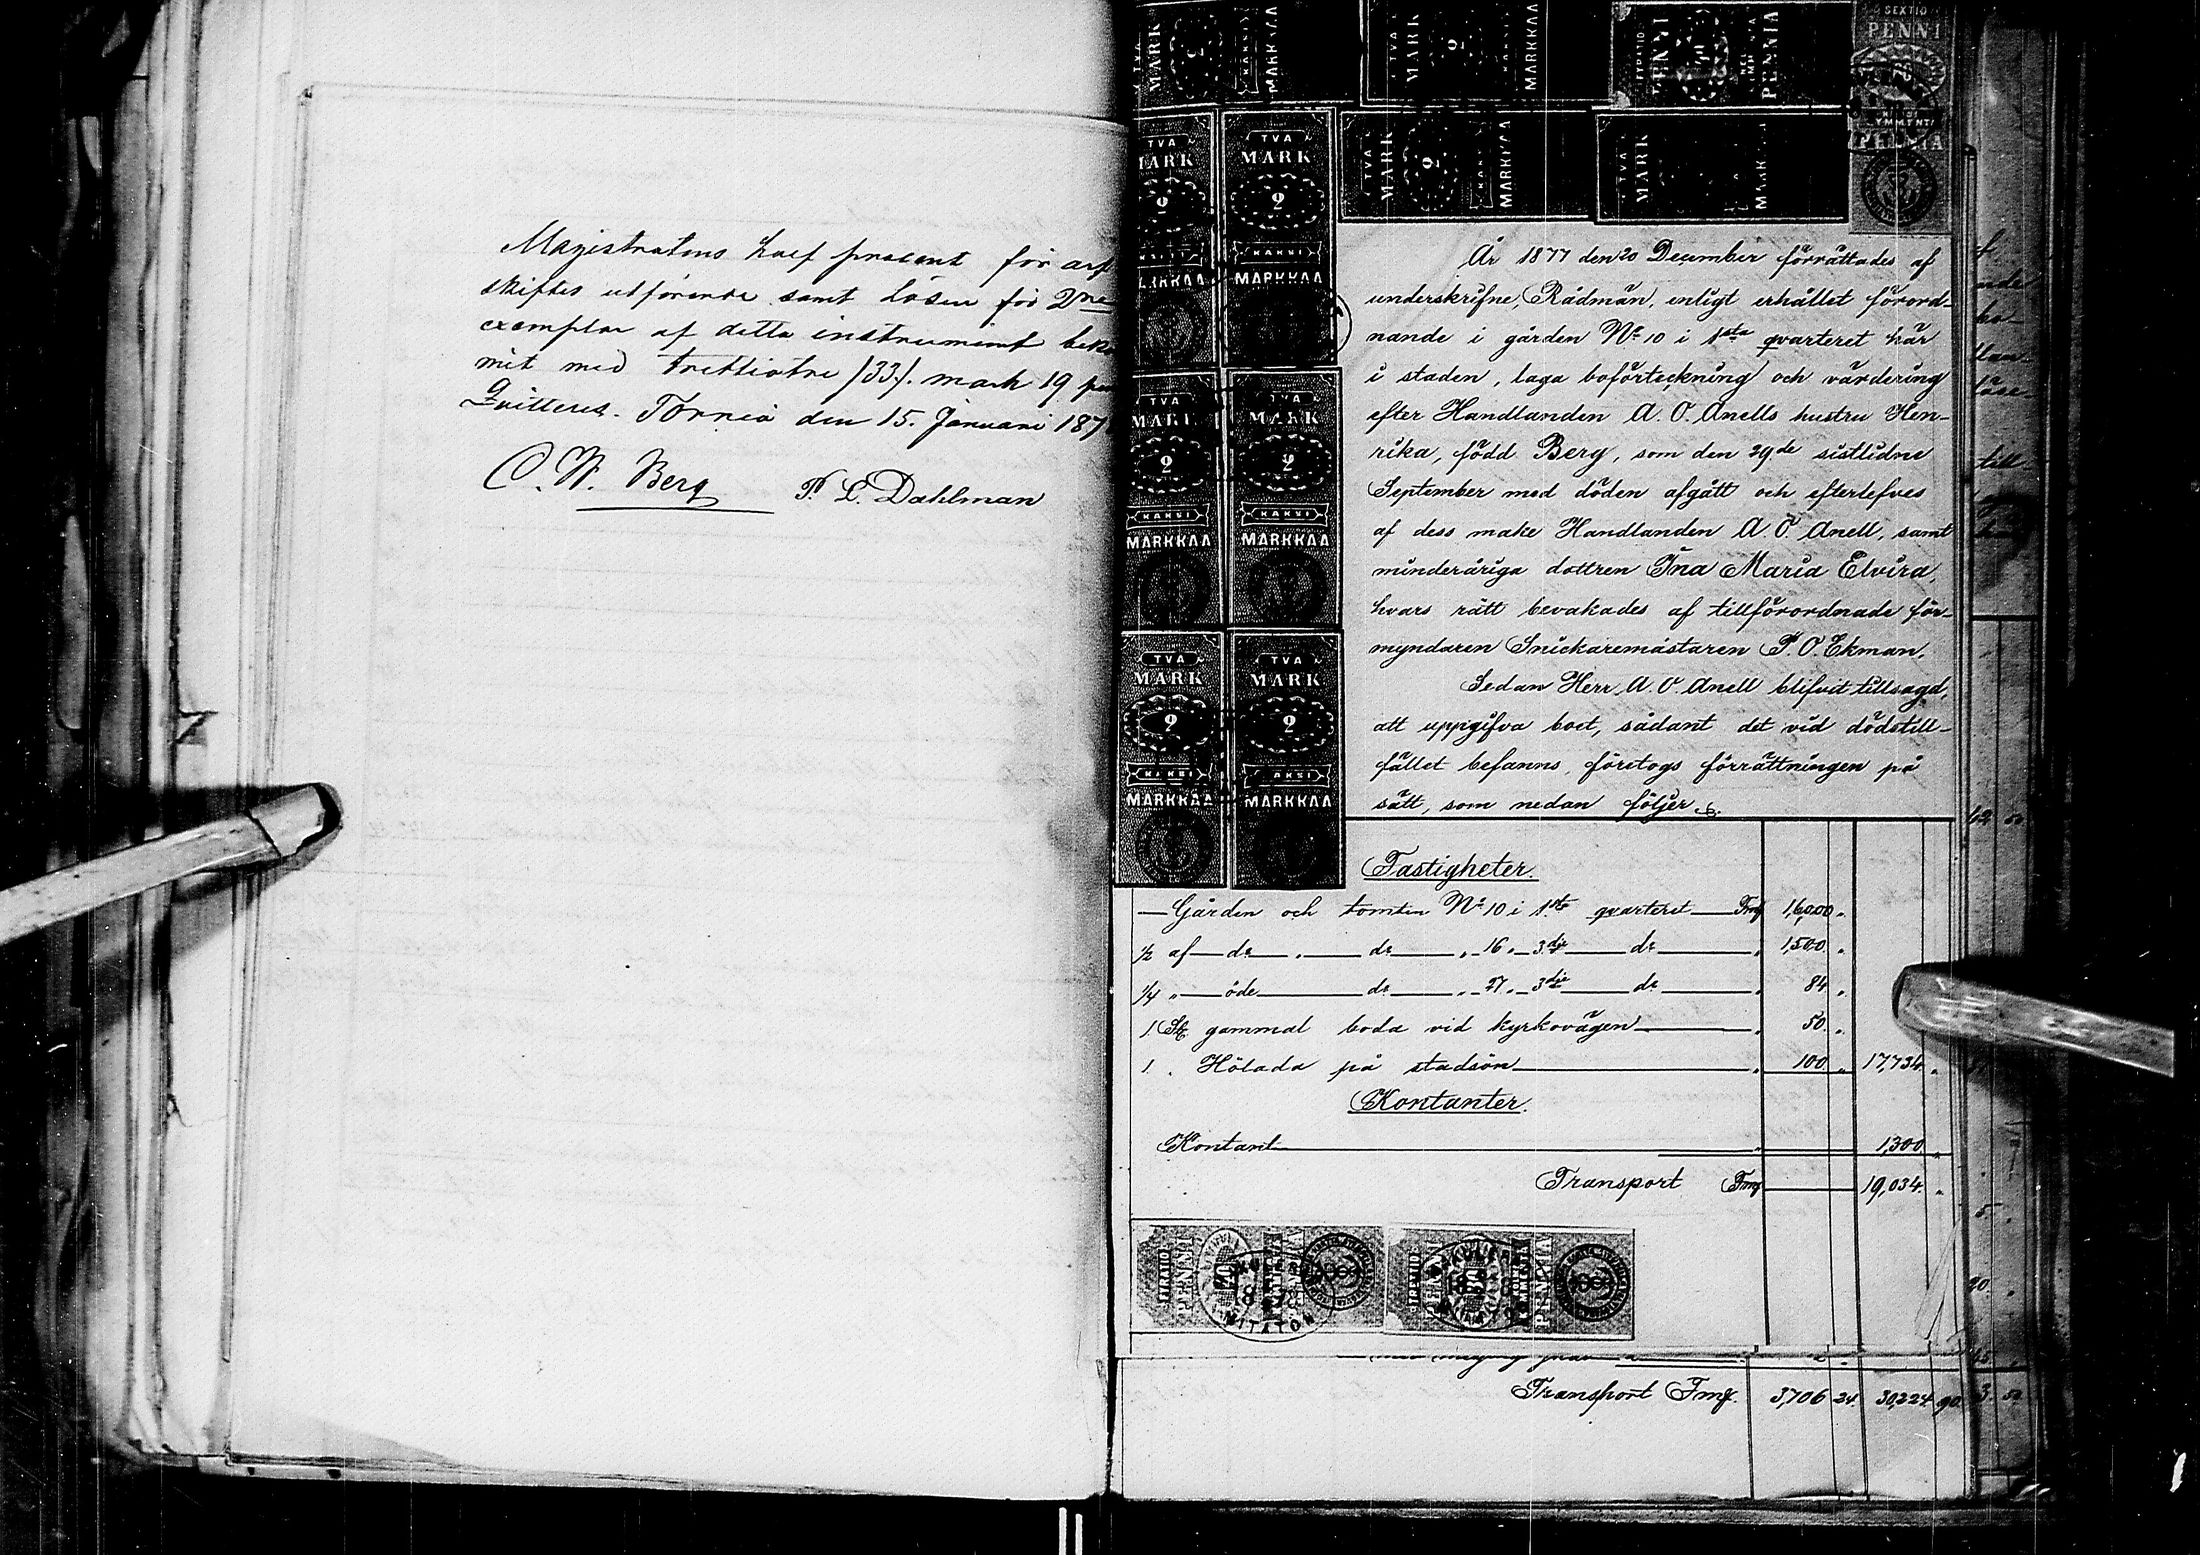 Magistratens half procent för arf
skiftes utförande samt lösen för 2ne
exemplar af detta instrument beko
mit med trettiotre /33/. mark 19 pe
Qvitteras. Torneå den 15. Januari 187
C. W. Berg P. L. Dahlman
SEXTIO
PENNI
TVÅ MARK 2 KAKSI MARKKAA
TVÅ MARK 2 KAKSI MARKKAA
TVÅ MARK 2 KAKSI MARKKAA
TVÅ MARK 2 KAKSI MARKKAA
TVÅ MARK 2 KAKSI MARKKAA
TVÅ MARK 2 KAKSI MARKKAA
År 1877 den 20 December förrättades af
underskrifne, Rådmän, enligt erhållet förord-
nande i gården No 10 i 1sta qvarteret här
i staden, laga boförteckning och värdering
efter Handlanden A. O. Anells hustru Hen-
rika, född Berg, som den 29de sistlidne
September med döden afgått och efterlefves
af dess make Handlanden A. O. Anell, samt
minderåriga dottren Ina Maria Elvira,
hvars rätt bevakades af tillförordnade för-
myndaren Snickaremästaren P. O. Ekman.
Sedan Herr A. O. Anell blifvit tillsagd,
att uppgifva boet, sådant det vid dödstill-
fället befanns, företogs förrättningen på
sätt, som nedan följer.
Fastigheter.
— Gården och tomten No 10 i 1sta qvarteret — Fmk 16,000 "
1/2 af — do — " — do — " — 16 " — 3dje — do — " 1,500 "
1/4 " — öde — do — " — 27 " — 3dje — do — " 84 "
1 St gammal boda vid kyrkovägen — " 50 "
1 " Hölada på stadsön — " 100 " 17,734 "
Kontanter.
Kontant — " 1,300 "
Transport Fmk — 19,034 "
Transport Fmk. 3,706 24. 30,224 90.